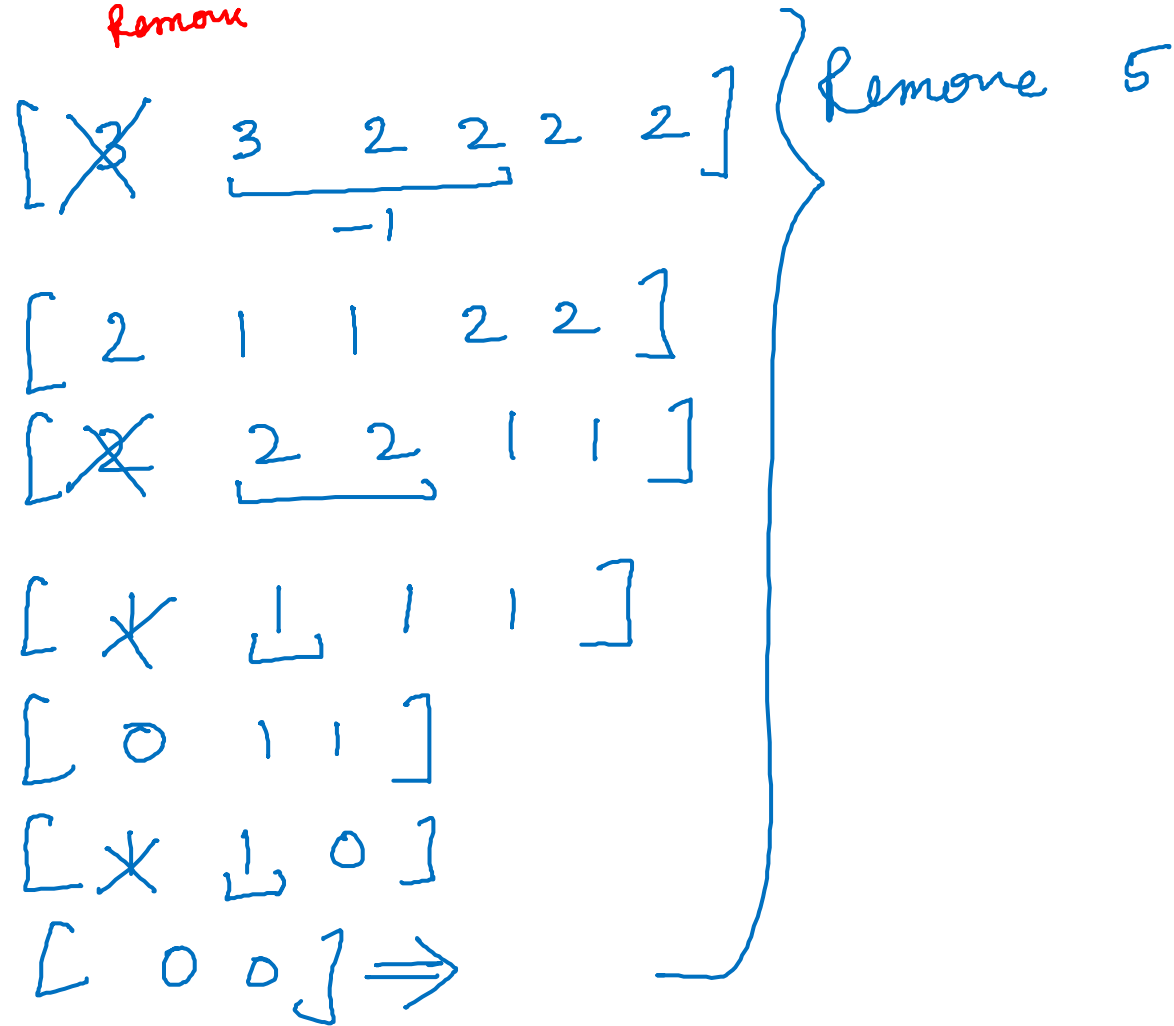 Remove
[ 3 3 2 2 2 2 ] Remove 5
-1
[ 2 1 1 2 2 ]
[ 2 2 2 1 1 ]
[ 1 1 1 1 ]
[ 0 1 1 ]
[ 1 1 0 ]
[ 0 0 ] ⇒